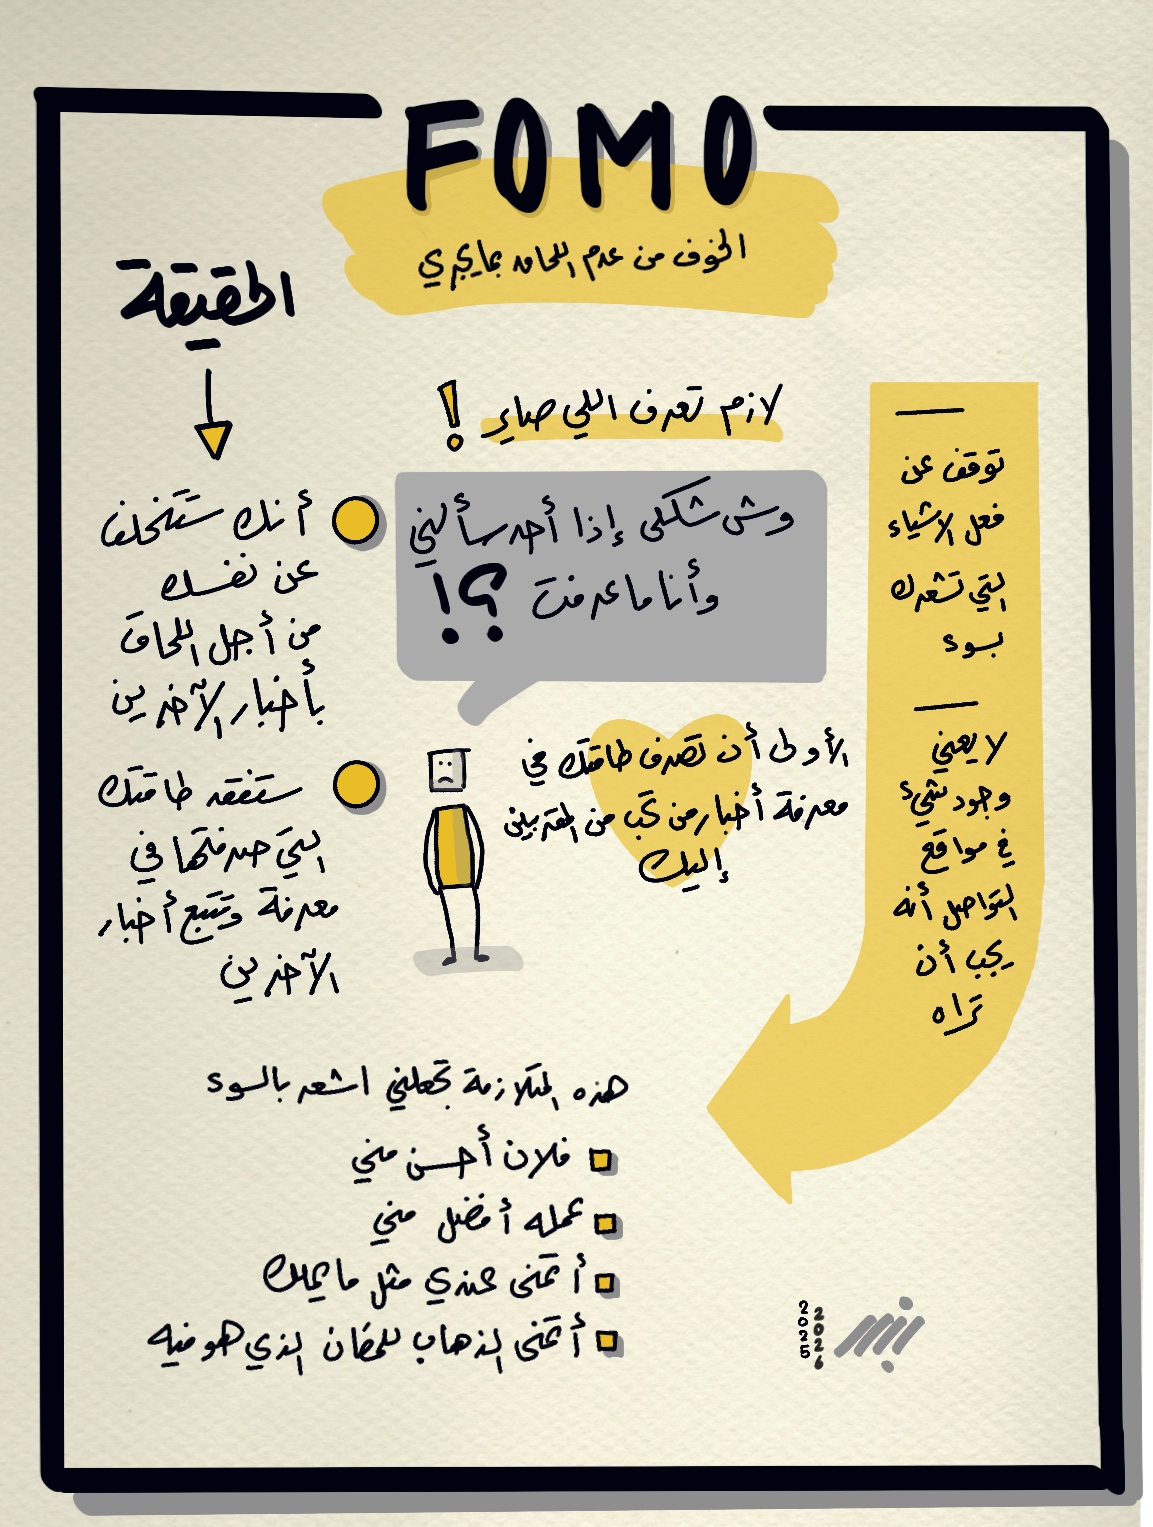 FOMO
الخوف من عدم اللحاق بما يجري
لازم تعرف اللي صاير !
وش شكلي إذا أحد سألني
وأنا ما عرفت ؟!
الأولى أن تصرف طاقتك في
معرفة أخبار من كثب من المقربين
إليك
الحقيقة
أنك ستتخلف
عن نفسك
من أجل اللحاق
بأخبار الآخرين
ستفقد طاقتك
التي صرفتها في
معرفة وتتبع أخبار
الآخرين
توقف عن
فعل الاشياء
التي تشعرك
بسوء
لا يعني
وجود شيء
في مواقع
التواصل أنه
يجب أن
تراه
هذه المتلازمة تجعلني اشعر بالسوء
فلان أحسن مني
عمله أفضل مني
أتمنى عندي مثل ما يملك
أتمنى الذهاب للمكان الذي هو فيه
2025
2026